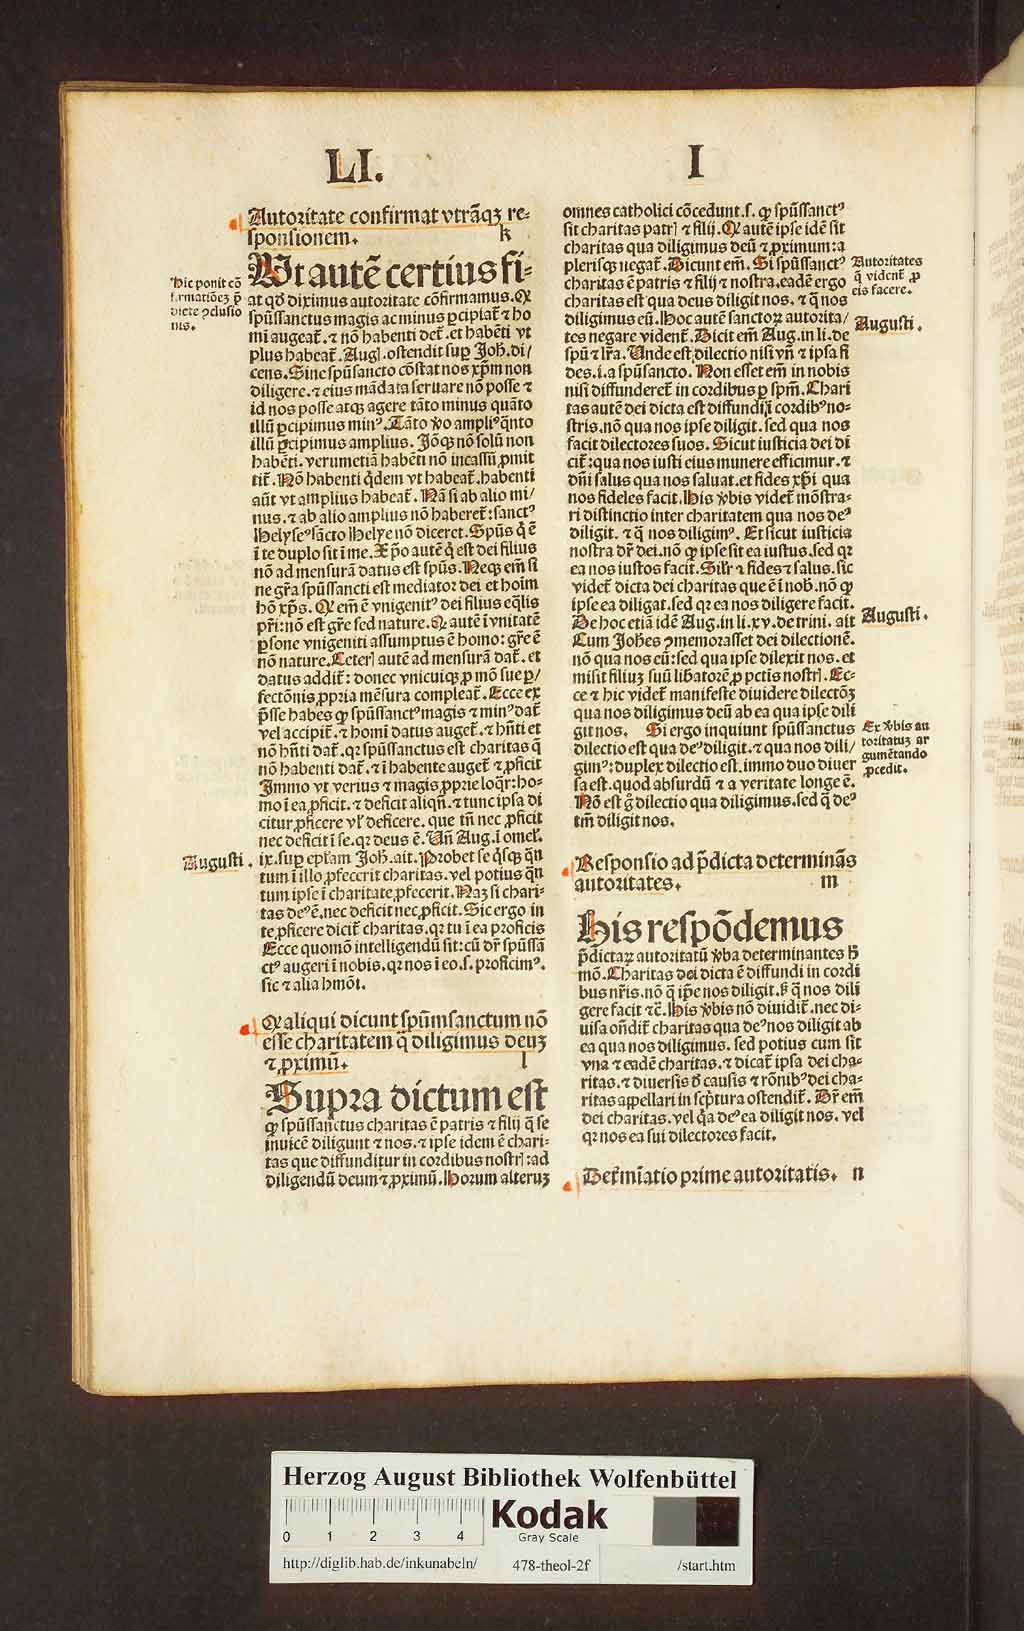 LI.
I
Autoritate confirmat vtrāqꝫ re⸗
sponsionem. k
Ut autē certius fi⸗
at qđ diximus autoritate cōfirmamus. Qƺ
spūssanctus magis ac minus ꝑcipiat̄ ⁊ ho
mi augeat̄. ⁊ nō habenti det̄. et habēti vt
plus habeat̄. Augꝭ. ostendit sup Joh̄. di/
cens. Sine spūsancto cōstat nos xp̄m non
diligere. ⁊ eius mādata seruare nō posse ⁊
id nos posse atqꝫ agere tāto minus quāto
illū ꝑcipimus minꝰ. Tāto ꝟo ampliꝰ q̄nto
illū ꝑcipimus amplius. Jōqꝫ nō solū non
habēti. verumetiā habēti nō incassū ꝓmit
tit̄. Nō habenti q̇dem vt habeat̄. habenti
aūt vt amplius habeat̄. Nā si ab alio mi/
nus. ⁊ ab alio amplius nō haberet̄: sanctꝰ
Helyseꝰ sācto Helye nō diceret. Spūs q̇ ē
ī te duplo sit ī me. Xp̄o autē q̇ est dei filius
nō ad mensurā datus est spūs. Neqꝫ em̄ si
ne gr̄a spūssancti est mediator dei et hoīm
hō xp̄s. Qƺ em̄ ē vnigenitꝰ dei filius eq̄lis
pr̄i: nō est gr̄e sed nature. Qƺ autē ī vnitatē
ꝑsone vnigeniti assumptus ē homo: gr̄e ē
nō nature. Ceterꝭ autē ad mensurā dat̄. et
datus addit̄: donec vnicuiqꝫ ꝓ mō sue ꝑ/
fectōnis ꝓpria mēsura compleat̄. Ecce ex
p̄sse habes ꝙ spūssanctꝰ magis ⁊ minꝰ dat̄
vel accipit̄. ⁊ homi datus auget̄. ⁊ hn̄ti et
nō hn̄ti dat̄. qƺ spūssanctus est charitas q̄
nō habenti dat̄. ⁊ ī habente auget̄ ⁊ ꝓficit
Jmmo vt verius ⁊ magis ꝓprie loqr̄: ho⸗
mo ī ea ꝓficit. ⁊ deficit aliqn̄. ⁊ tunc ipsa di
citur ꝓficere vl̄ deficere. que tn̄ nec ꝓficit
nec deficit ī se. qƺ deus ē. Un̄ Aug. ī omel̄.
ix. sup ep̄lam Joh̄. ait. Probet se q̇sqꝫ q̄n
tum ī illo ꝓfecerit charitas. vel potius q̄n
tum ipse ī charitate ꝓfecerit. Naꝫ si chari⸗
tas deꝰ ē. nec deficit nec ꝓficit. Sic ergo in
te ꝓficere dicit̄ charitas. qƺ tu ī ea proficis
Ecce quomō intelligendū sit: cū dr̄ spūssā
ctꝰ augeri ī nobis. qƺ nos ī eo. s. proficimꝰ.
sic ⁊ alia hmōi.
Qƺ aliqui dicunt spūmsanctum nō
esse charitatem q̄ diligimus deuꝫ
⁊ ꝓximū. l
Supra dictum est
ꝙ spūssanctus charitas ē patris ⁊ filij q̄ se
inuicē diligunt ⁊ nos. ⁊ ipse idem ē chari⸗
tas que diffunditur in cordibus nostrꝭ: ad
diligendū deum ⁊ ꝓximū. Horum alteruꝫ
Hic ponit cō
firmatiōeꝫ p̄
diete ꝯclusio
nis.
Augusti.
omnes catholici cōcedunt. s. ꝙ spūssanctꝰ
sit charitas patrꝭ ⁊ filij. Qƺ autē ipse idē sit
charitas qua diligimus deū ⁊ ꝓximum: a
plerisqꝫ negat̄. Dicunt em̄. Si spūssanctꝰ
charitas ē patris ⁊ filij ⁊ nostra. eadē ergo
charitas est qua deus diligit nos. ⁊ q̄ nos
diligimus eū. Hoc autē sanctoꝝ autorita/
tes negare vident̄. Dicit em̄ Aug. in li. de
spū ⁊ lr̄a. Unde est dilectio nisi vn̄ ⁊ ipsa fi
des. i. a spūsancto. Non esset em̄ in nobis
nisi diffunderet̄ in cordibus ꝑ spm̄. Chari
tas autē dei dicta est diffundi ī cordibꝰ no⸗
stris. nō qua nos ipse diligit. sed qua nos
facit dilectores suos. Sicut iusticia dei di
cit̄: qua nos iusti eius munere efficimur. ⁊
dn̄i salus qua nos saluat. et fides xp̄i qua
nos fideles facit. His ꝟbis videt̄ mōstra⸗
ri distinctio inter charitatem qua nos deꝰ
diligit. ⁊ q̄ nos diligimꝰ. Et sicut iusticia
nostra dr̄ dei. nō ꝙ ipse sit ea iustus. sed qƺ
ea nos iustos facit. Silr̄ ⁊ fides ⁊ salus. sic
videt̄ dicta dei charitas que ē ī nob̄. nō ꝙ
ipse ea diligat. sed qƺ ea nos diligere facit.
De hoc etiā idē Aug. in li. xv. de trini. ait
Cum Joh̄es ꝯmemorasset dei dilectionē.
nō qua nos eū: sed qua ipse dilexit nos. et
misit filiuꝫ suū libatorē ꝓ pctis nostrꝭ. Ec⸗
ce ⁊ hic videt̄ manifeste diuidere dilectōꝫ
qua nos diligimus deū ab ea qua ipse dili
git nos. Si ergo inquiunt spūssanctus
dilectio est qua deꝰ diligit. ⁊ qua nos dili/
gimꝰ: duplex dilectio est. immo duo diuer
sa est. quod absurdū ⁊ a veritate longe ē.
Nō est g̊ dilectio qua diligimus. sed q̄ deꝰ
tm̄ diligit nos.
Responsio ad p̄dicta determinās
autoritates. m
His respōdemus
p̄dictaꝝ autoritatū ꝟba determinantes h̄
mō. Charitas dei dicta ē diffundi in cordi
bus nr̄is. nō q̄ ip̄e nos diligit. sꝫ q̄ nos dili
gere facit ⁊c̄. His ꝟbis nō diuidit̄. nec di⸗
uisa on̄dit̄ charitas qua deꝰ nos diligit ab
ea qua nos diligimus. sed potius cum sit
vna ⁊ eadē charitas. ⁊ dicat̄ ipsa dei cha⸗
ritas. ⁊ diuersis d̄ causis ⁊ rōnibꝰ dei cha⸗
ritas appellari in sc̄ptura ostendit̄. Dr̄ em̄
dei charitas. vel q̇a deꝰ ea diligit nos. vel
qƺ nos ea sui dilectores facit.
Det̄mīatio prime autoritatis. n
Autoritates
q̄ vident̄ ꝓ
eis facere.
Augusti.
Augusti.
Ex ꝟbis au
toritatuꝫ ar
gumētando
ꝓcedit.
Herzog August Bibliothek Wolfenbüttel
0 1 2 3 4
Kodak
Gray Scale
http://diglib.hab.de/inkunabeln/ 478-theol-2f /start.htm